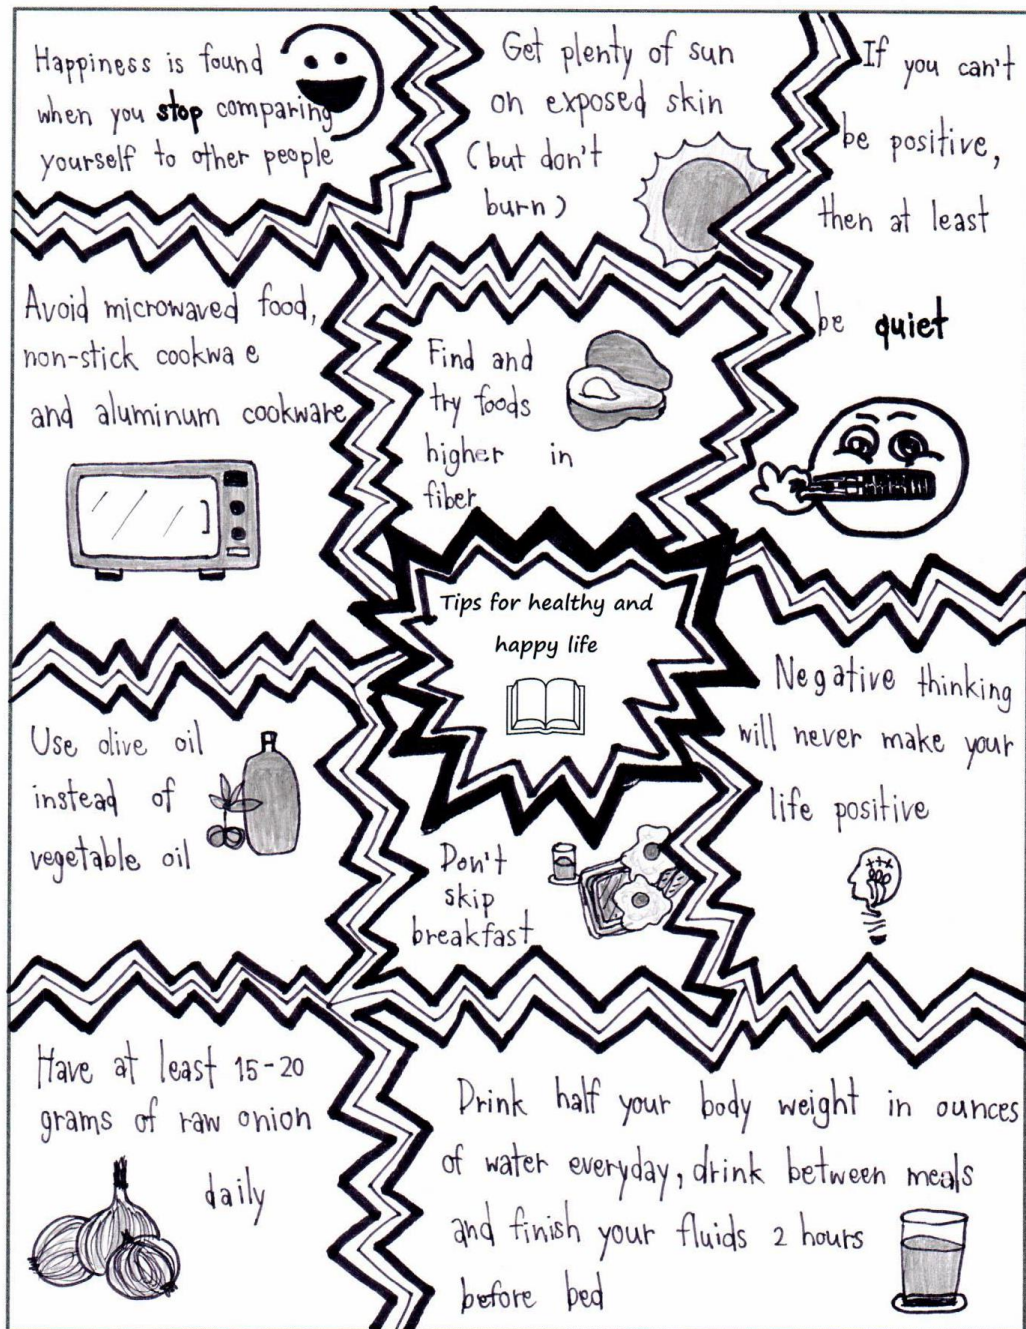 Happiness is found
when you stop comparing
yourself to other people
Get plenty of sun
on exposed skin
(but don't
burn)
If you can't
be positive,
then at least
be quiet
Avoid microwaved food,
non-stick cookwa e
and aluminum cookware
Find and
try foods
higher in
fiber
Tips for healthy and
happy life
Negative thinking
will never make your
life positive
Use olive oil
instead of
vegetable oil
Don't
skip
breakfast
Have at least 15-20
grams of raw onion
daily
Drink half your body weight in ounces
of water everyday, drink between meals
and finish your fluids 2 hours
before bed